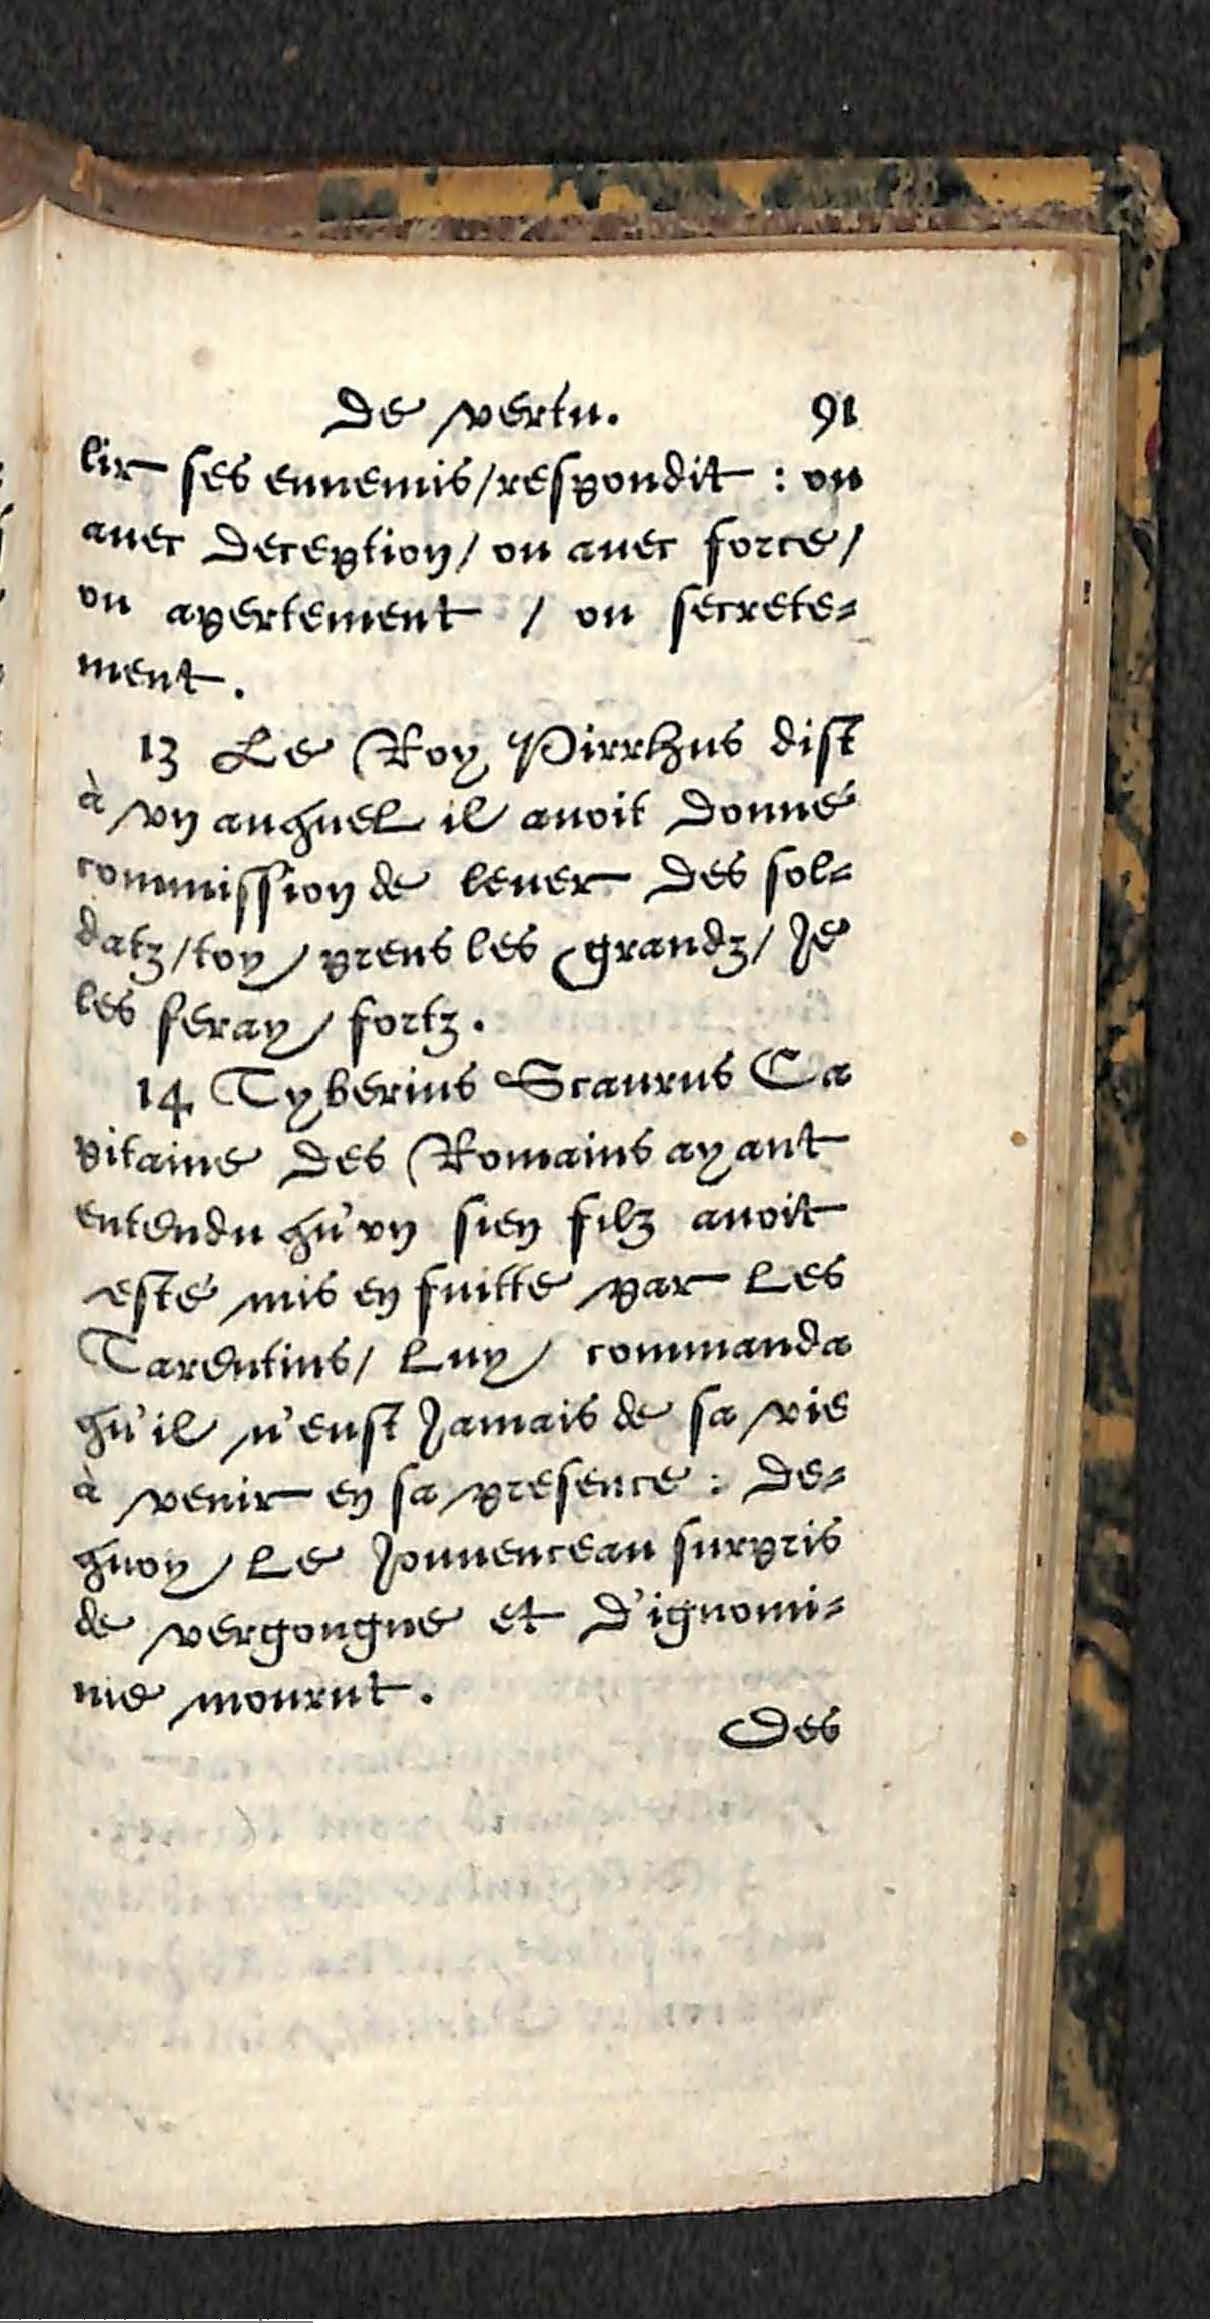 De vertu. 91
lir ses ennemis/respondit : ou
auec deception/ ou auec force/
ou apertement / ou secrete-
ment.
13 Le Roy Pirrhus dist
à vn auquel il auoit donné
commission de leuer des sol-
datz/toy prens les grandz/ Je
les feray fortz.
14 Tyberius Scaurus Ca
pitaine des Romains ayant
entendu qu'vn sien filz auoit
esté mis en fuitte par les
Tarentins/ luy commanda
qu'il n'eust Jamais de sa vie
à venir en sa presence : de-
quoy le Jouuenceau surpris
de vergongne et d'ignomi-
nie mourut.
Des